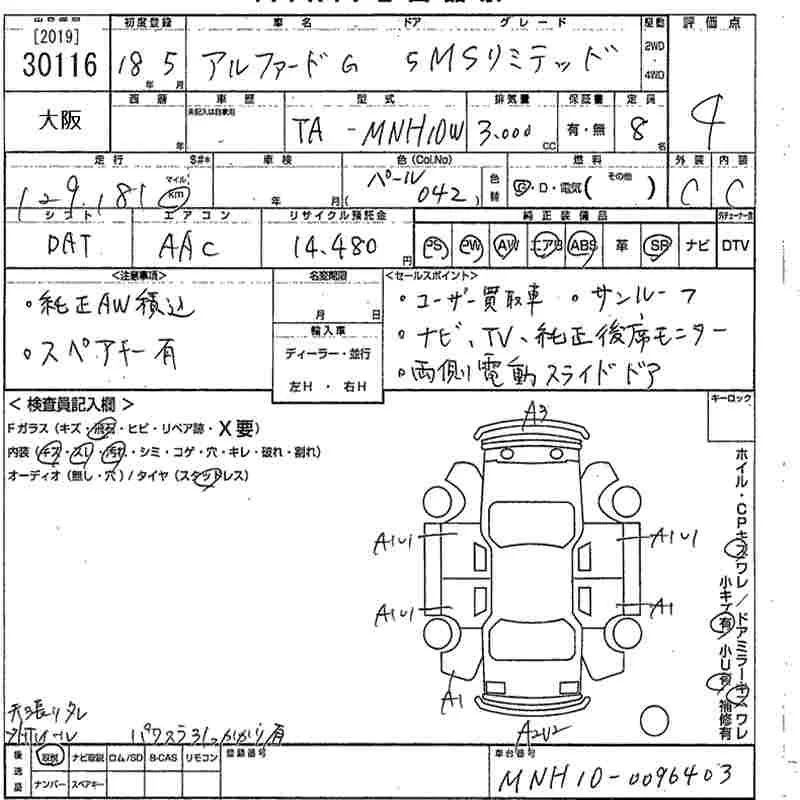 [2019]
30116
初度登録 車名 ドア グレード 駆動 評価点
18年 5月 アルファード G 5 MSリミテッド 2WD・4WD
大阪
西暦 車歴 型式 排気量 積載量 定員
年 未記入は自家用 TA-MNH10W 3.000cc 有・無 8名 4
走行 S#* 車検 色(Col.No) 色替 燃料 外装 内装
129.181 マイル Km 年 月 パール (042) G・D・電気( その他 ) C C
シフト エアコン リサイクル預託金 純正装備品
DAT AAC 14.480円 PS PW AW エアB ABS 革 SR ナビ DTV
<注意事項> 名変期限 <セールスポイント>
・純正AW積込 月 日 ・ユーザー買取車 ・サンルーフ
・スペアキー有 輸入車 ・ナビ、TV、純正後席モニター
ディーラー・並行 ・両側電動スライドドア
左H・右H
<検査員記入欄> キーロック
Fガラス(キズ・飛石・ヒビ・リペア跡・X要)
内装(キズ・スレ・汚れ・シミ・コゲ・穴・キレ・破れ・割れ)
オーディオ(無し・穴)/タイヤ(スタッドレス)
A3
A1U1 A1U1
A1U1 A1
A1
A2U2
ホイル・CPキズワレ/ドアミラーキズワレ
小キズ有 小U有 補修有
天張りタレ
パワステ
後送品 取説 ナビ取説 ロム/SD B-CAS リモコン 登録番号 車台番号
ナンバー スペアキー MNH10-0096403